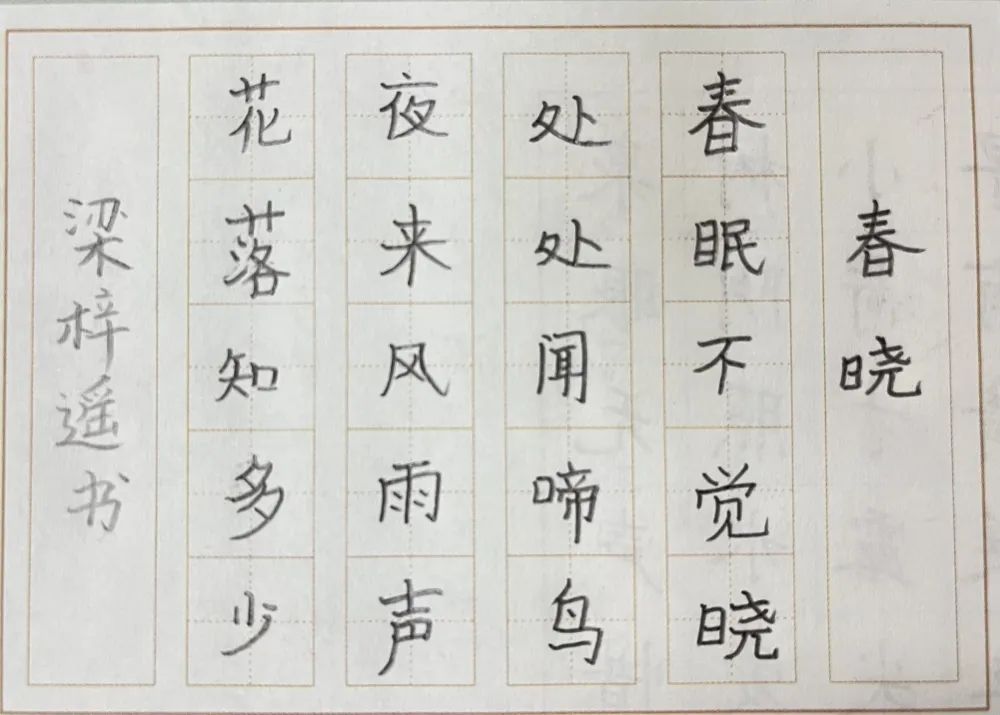 春晓
春眠不觉晓
处处闻啼鸟
夜来风雨声
花落知多少
梁梓遥书